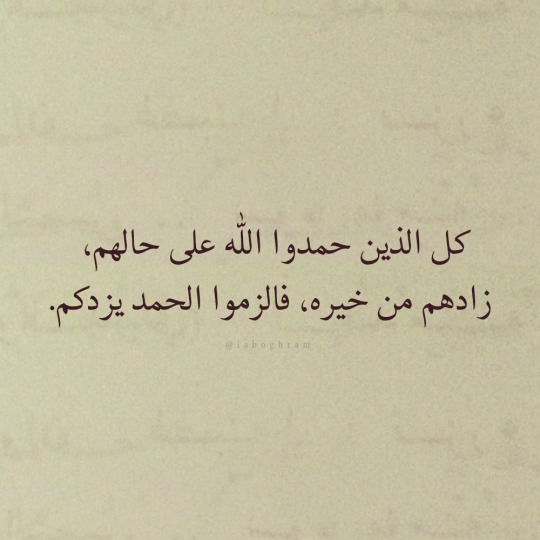 كل الذين حمدوا الله على حالهم،
زادهم من خيره، فالزموا الحمد يزدكم.
@iaboghram